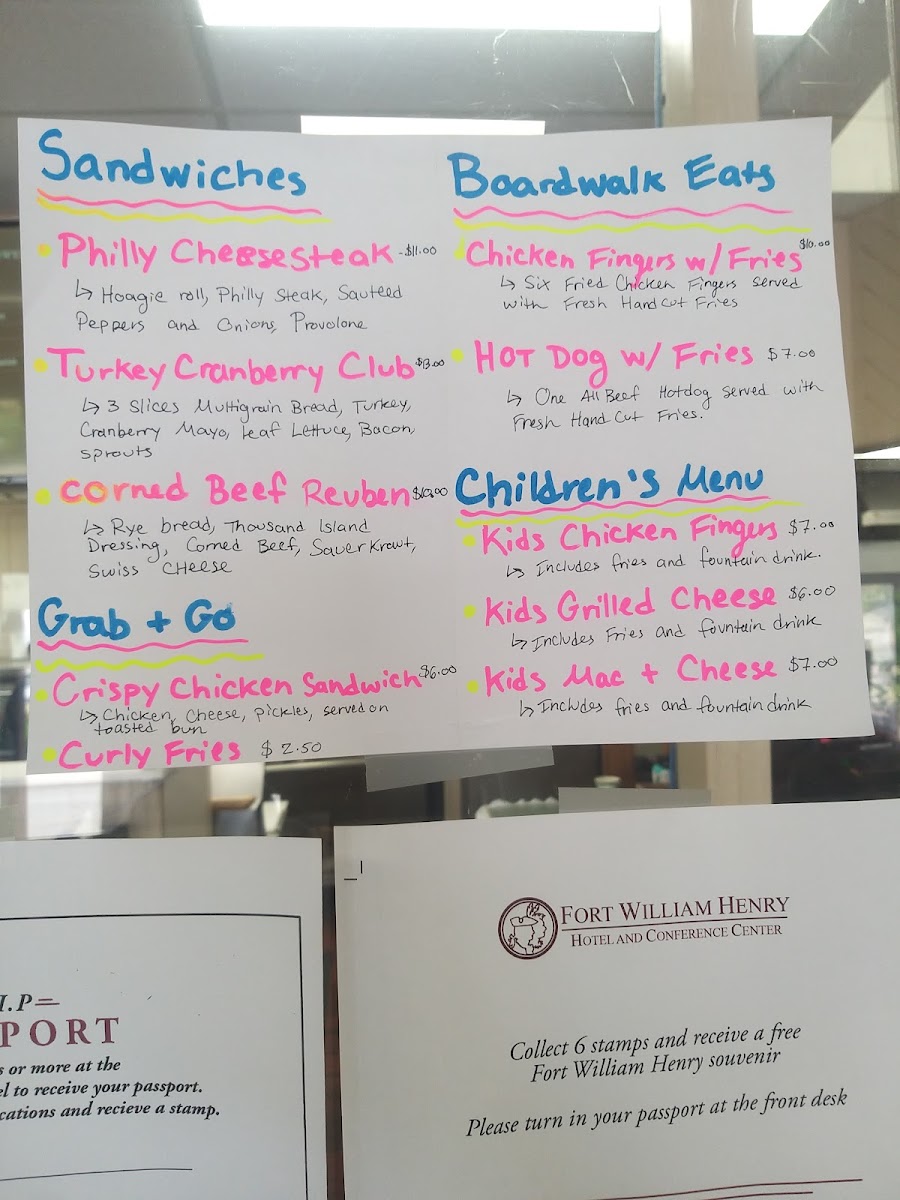 Sandwiches
Philly Cheesesteak -$11.00
↳ Hoagie roll, Philly Steak, Sauteed
Peppers and Onions, Provolone
Turkey Cranberry Club
↳ 3 Slices Multigrain Bread, Turkey,
Cranberry Mayo, Leaf Lettuce, Bacon,
sprouts
Corned Beef Reuben
↳ Rye bread, Thousand Island
Dressing, Corned Beef, Sauerkraut,
Swiss Cheese
Grab + Go
Crispy Chicken Sandwich $6.00
↳ Chicken, Cheese, pickles, served on
toasted bun
Curly Fries $2.50
Boardwalk Eats
Chicken Fingers w/ Fries $10.00
↳ Six Fried Chicken Fingers served
with Fresh Hand Cut Fries
Hot Dog w/ Fries $7.00
↳ One All Beef Hotdog Served with
Fresh Hand Cut Fries.
Children's Menu
Kids Chicken Fingers $7.00
↳ Includes fries and fountain drink.
Kids Grilled Cheese $6.00
↳ Includes Fries and fountain drink
Kids Mac + Cheese $7.00
↳ Includes fries and fountain drink
I.P
PORT
s or more at the
el to receive your passport.
cations and recieve a stamp.
FORT WILLIAM HENRY
HOTEL AND CONFERENCE CENTER
Collect 6 stamps and receive a free
Fort William Henry souvenir
Please turn in your passport at the front desk